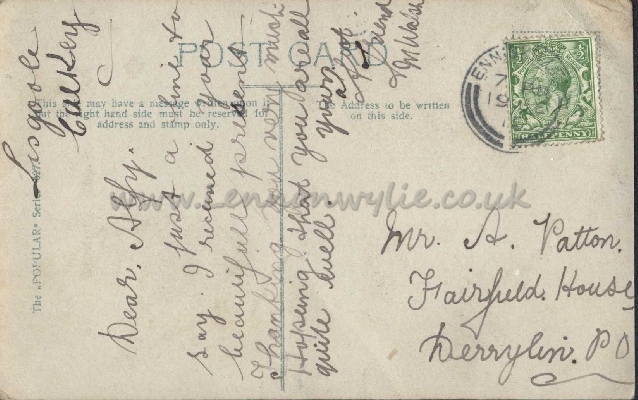 POST CARD
This space may have a message written upon it
but the right hand side must be reserved for
address and stamp only.
The Address to be written
on this side.
The "POPULAR" Series
Lisgoole
Dear Alfy.
Just a line to
say I received your
beautifull present
Thanking you very much.
Hopeing that you are all
quite well. Your
friend
Mr. A. Patton.
Fairfield. House
Derrylin. P O
HALFPENNY
www.Lennonwylie.co.uk